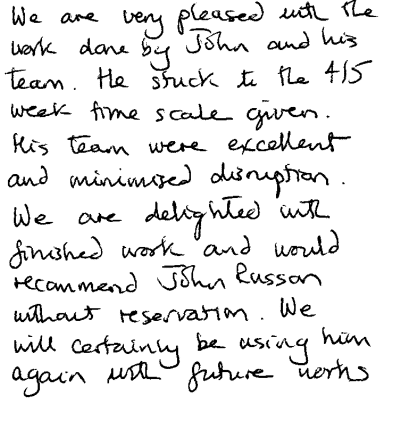 We are very pleased with the
work done by John and his
team. He stuck to the 4/5
week time scale given.
His team were excellent
and minimised disruption.
We are delighted with
finished work and would
recommend John Russon
without reservation. We
will certainly be using him
again with future works